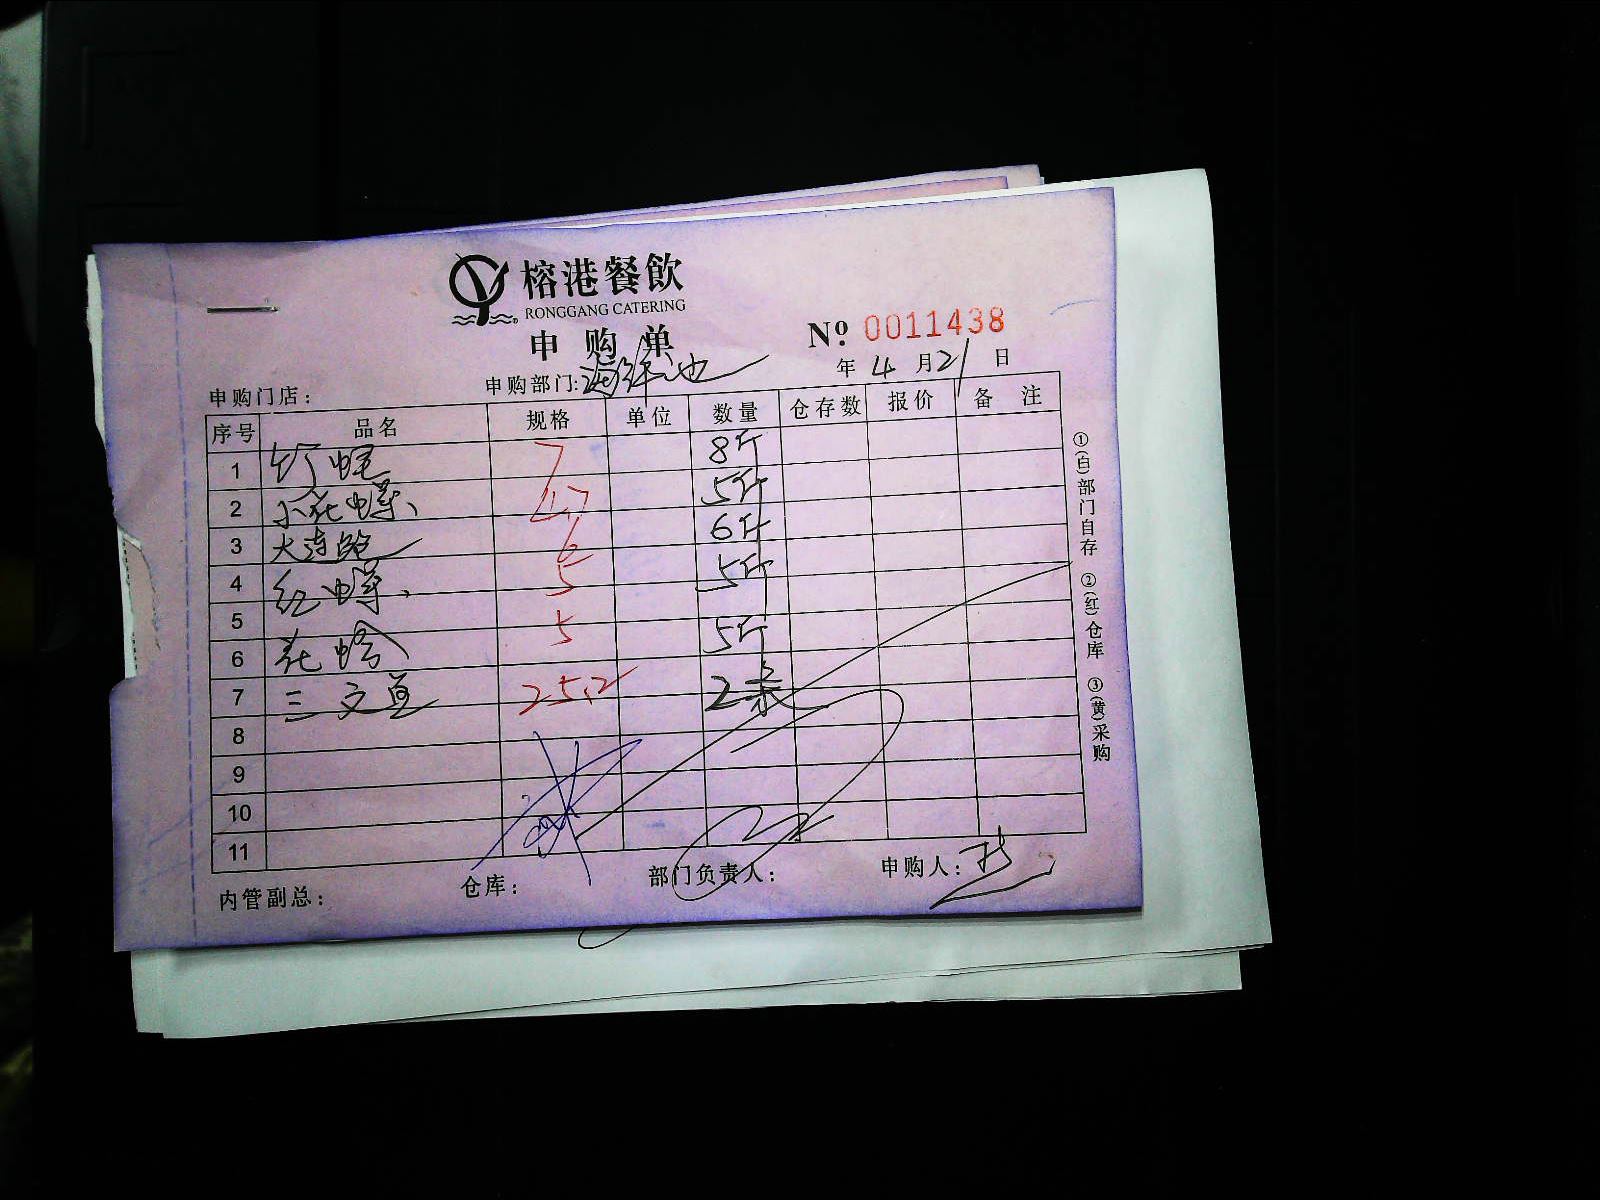 榕港餐飲
RONGGANG CATERING
申购单
№ 0011438
年 4 月 21 日
申购门店： 申购部门：海鲜池
序号 品名 规格 单位 数量 仓存数 报价 备注
1 竹蛏 7 8斤
2 小花螺 4.7 5斤
3 大连鲍 6 6斤
4 红螺 5 5斤
5
6 花蛤 5 5斤
7 三文鱼 25.2 2条
8
9
10
11
内管副总： 仓库： 部门负责人： 申购人：
①(白)部门自存 ②(红)仓库 ③(黄)采购